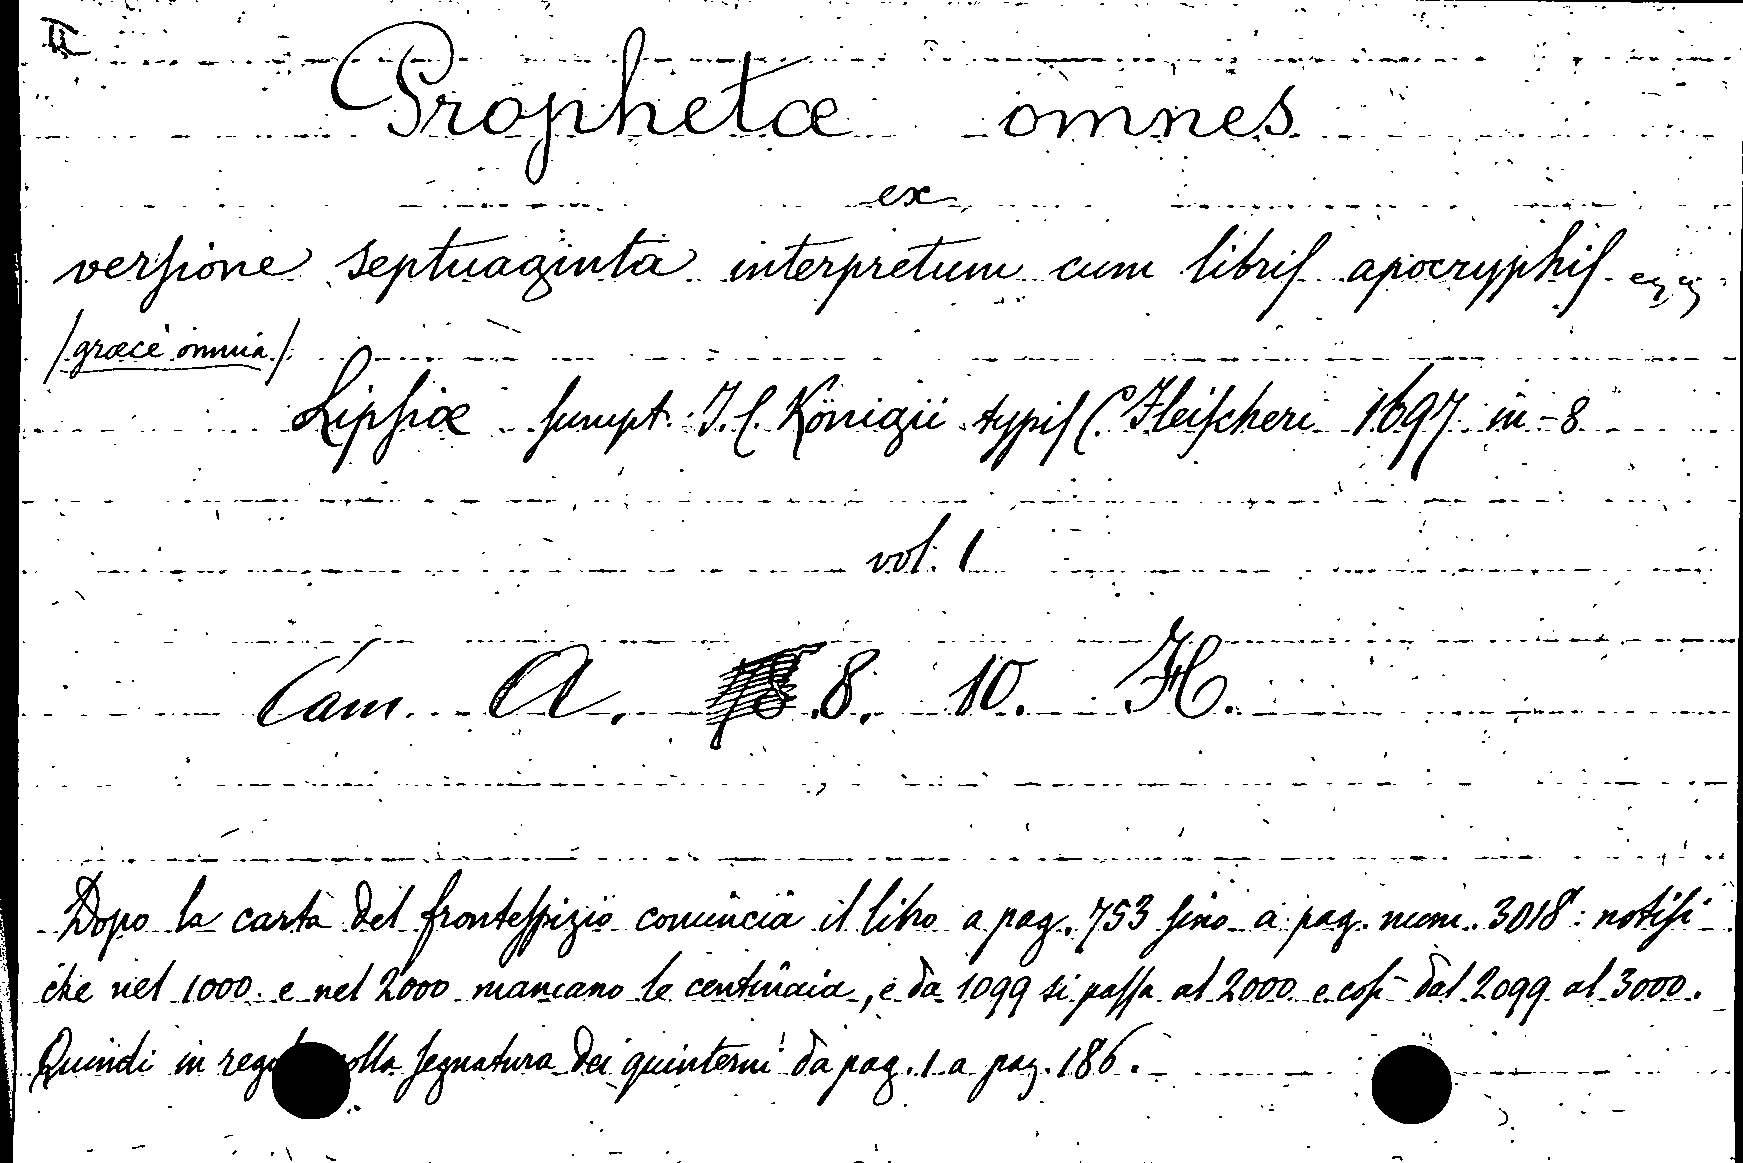 II
Prophetæ omnes
ex
versione septuaginta interpretum cum libris apocryphis
/græce omnia/
Lipsiæ sumpt. I. C. Königii typis C. Fleischeri 1697 in-8
vol. 1
Cam. A. 8. 10. H.
Dopo la carta del frontespizio comincia il libro a pag. 753 sino a pag. num. 3018: notisi
che nel 1000 e nel 2000 mancano le centinaia, e da 1099 si passa al 2000 e così dal 2099 al 3000.
Quindi in segnatura dei quinterni da pag. 1 a pag. 186.